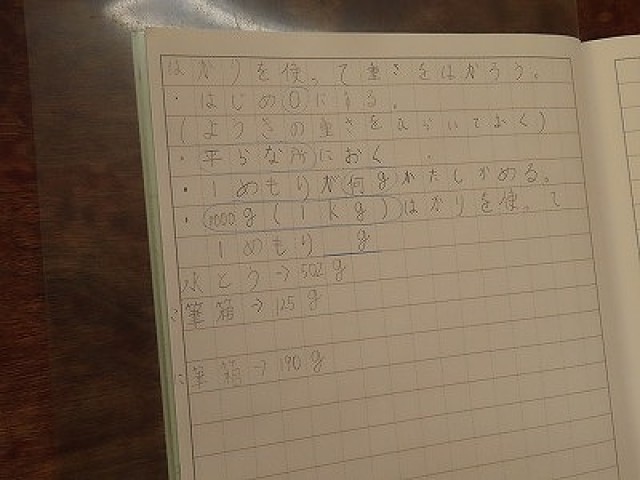 はかりを使って重さをはかろう。
・はじめ0にする。
(ようきの重さをひいておく)
・平らな所におく
・1めもりが何gかたしかめる。
・1000g(1kg)はかりを使って
1めもり g
水とう→502g
筆箱→125g
筆箱→190g